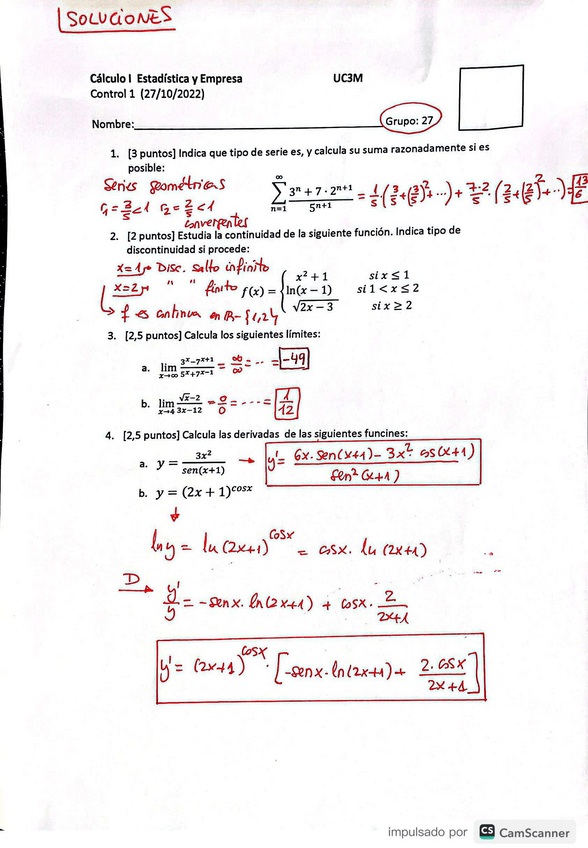 SOLUCIONES
Cálculo I Estadística y Empresa UC3M
Control 1 (27/10/2022)
Nombre:____ Grupo: 27
1. [3 puntos] Indica que tipo de serie es, y calcula su suma razonadamente si es
posible:
Series geométricas
r₁ = 3/5 < 1 r₂ = 2/5 < 1
convergentes
∑_{n=1}^{∞} (3ⁿ + 7 · 2ⁿ⁺¹)/5ⁿ⁺¹ = 1/5 · (3/5 + (3/5)² + ...) + 7·2/5 · (2/5 + (2/5)² + ...) = 13/6
2. [2 puntos] Estudia la continuidad de la siguiente función. Indica tipo de
discontinuidad si procede:
x=1 → Disc. Salto infinito
x=2 → " " finito
↳ f es continua en ℝ - {1,2}
f(x) = { x² + 1 si x ≤ 1
ln(x − 1) si 1 < x ≤ 2
√(2x − 3) si x ≥ 2
3. [2,5 puntos] Calcula los siguientes límites:
a. lim_{x→∞} (3ˣ−7ˣ⁺¹)/(5ˣ+7ˣ⁻¹) = ∞/∞ = ... = -49
b. lim_{x→4} (√x−2)/(3x−12) = 0/0 = .... = 1/12
4. [2,5 puntos] Calcula las derivadas de las siguientes funcines:
a. y = 3x²/sen(x+1) → y' = (6x · sen(x+1) − 3x² · cos(x+1))/sen²(x+1)
b. y = (2x + 1)^cosx
↓
ln y = ln (2x+1)^cosx = cosx · ln (2x+1)
D → y'/y = -senx · ln(2x+1) + cosx · 2/(2x+1)
y' = (2x+1)^cosx · [-senx · ln(2x+1) + (2 · cosx)/(2x+1)]
impulsado por CS CamScanner